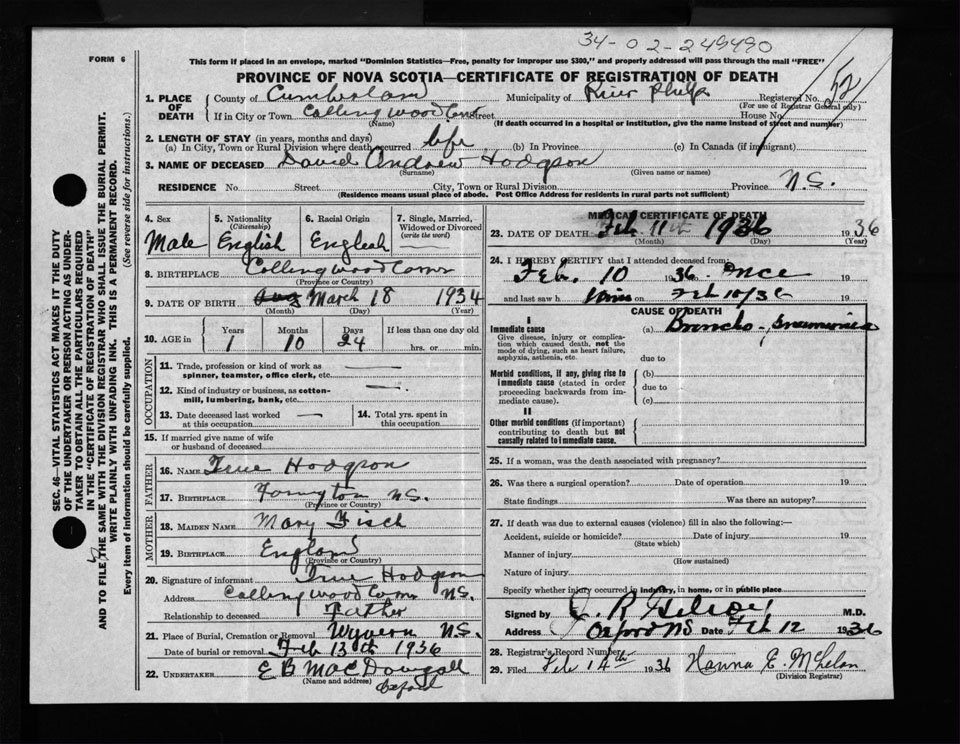 34-02-249490
FORM 6
This form if placed in an envelope, marked "Dominion Statistics—Free, penalty for improper use $300," and properly addressed will pass through the mail "FREE"
PROVINCE OF NOVA SCOTIA—CERTIFICATE OF REGISTRATION OF DEATH
1. PLACE OF DEATH County of Cumberland Municipality of River Philip Registered No. 52
(For use of Registrar General only)
If in City or Town Collingwood Corner Street House No.
(Name) (If death occurred in a hospital or institution, give the name instead of street and number)
2. LENGTH OF STAY (in years, months and days)
(a) In City, Town or Rural Division where death occurred life (b) In Province (c) In Canada (if immigrant)
3. NAME OF DECEASED David Andrew Hodgson
(Surname) (Given name or names)
RESIDENCE No. Street City, Town or Rural Division Province N.S.
(Residence means usual place of abode. Post Office Address for residents in rural parts not sufficient)
4. Sex Male
5. Nationality (Citizenship) English
6. Racial Origin English
7. Single, Married, Widowed or Divorced (write the word)
8. BIRTHPLACE Collingwood Corner
(Province or Country)
9. DATE OF BIRTH Aug March 18 1934
(Month) (Day) (Year)
10. AGE in Years Months Days If less than one day old
1 10 24 hrs. or min.
OCCUPATION
11. Trade, profession or kind of work as spinner, teamster, office clerk, etc. —
12. Kind of industry or business, as cotton-mill, lumbering, bank, etc. —
13. Date deceased last worked at this occupation —
14. Total yrs. spent in this occupation
15. If married give name of wife or husband of deceased
FATHER
16. NAME True Hodgson
17. BIRTHPLACE N.S.
(Province or Country)
MOTHER
18. MAIDEN NAME Mary Fisch
19. BIRTHPLACE England
(Province or Country)
20. Signature of informant True Hodgson
Address Collingwood Corner N.S.
Relationship to deceased Father
21. Place of Burial, Cremation or Removal Wyvern N.S.
Date of burial or removal Feb 13th 1936
22. UNDERTAKER E B MacDougall
(Name and address) Oxford
MEDICAL CERTIFICATE OF DEATH
23. DATE OF DEATH Feb 11th 1936 1936
(Month) (Day) (Year)
24. I HEREBY CERTIFY that I attended deceased from
Feb. 10 1936 to once 19
and last saw h him on Feb 10/36 19
CAUSE OF DEATH
I
Immediate cause (a) Broncho-pneumonia
Give disease, injury or complication which caused death, not the mode of dying, such as heart failure, asphyxia, asthenia, etc.
due to
Morbid conditions, if any, giving rise to immediate cause (stated in order proceeding backwards from immediate cause).
(b)
due to
(c)
II
Other morbid conditions (if important) contributing to death but not causally related to immediate cause.
25. If a woman, was the death associated with pregnancy?
26. Was there a surgical operation? Date of operation 19
State findings Was there an autopsy?
27. If death was due to external causes (violence) fill in also the following:—
Accident, suicide or homicide? Date of injury 19
(State which)
Manner of injury
(How sustained)
Nature of injury
Specify whether injury occurred in industry, in home, or in public place
Signed by M.D.
Address Oxford NS Date Feb 12 1936
28. Registrar's Record Number
29. Filed Feb 14th 1936 Hanna E.
(Division Registrar)
SEC. 46—VITAL STATISTICS ACT MAKES IT THE DUTY
OF THE UNDERTAKER OR PERSON ACTING AS UNDER-
TAKER TO OBTAIN ALL THE PARTICULARS REQUIRED
IN THE "CERTIFICATE OF REGISTRATION OF DEATH"
AND TO FILE THE SAME WITH THE DIVISION REGISTRAR WHO SHALL ISSUE THE BURIAL PERMIT.
WRITE PLAINLY WITH UNFADING INK. THIS IS A PERMANENT RECORD.
Every item of information should be carefully supplied. (See reverse side for instructions.)